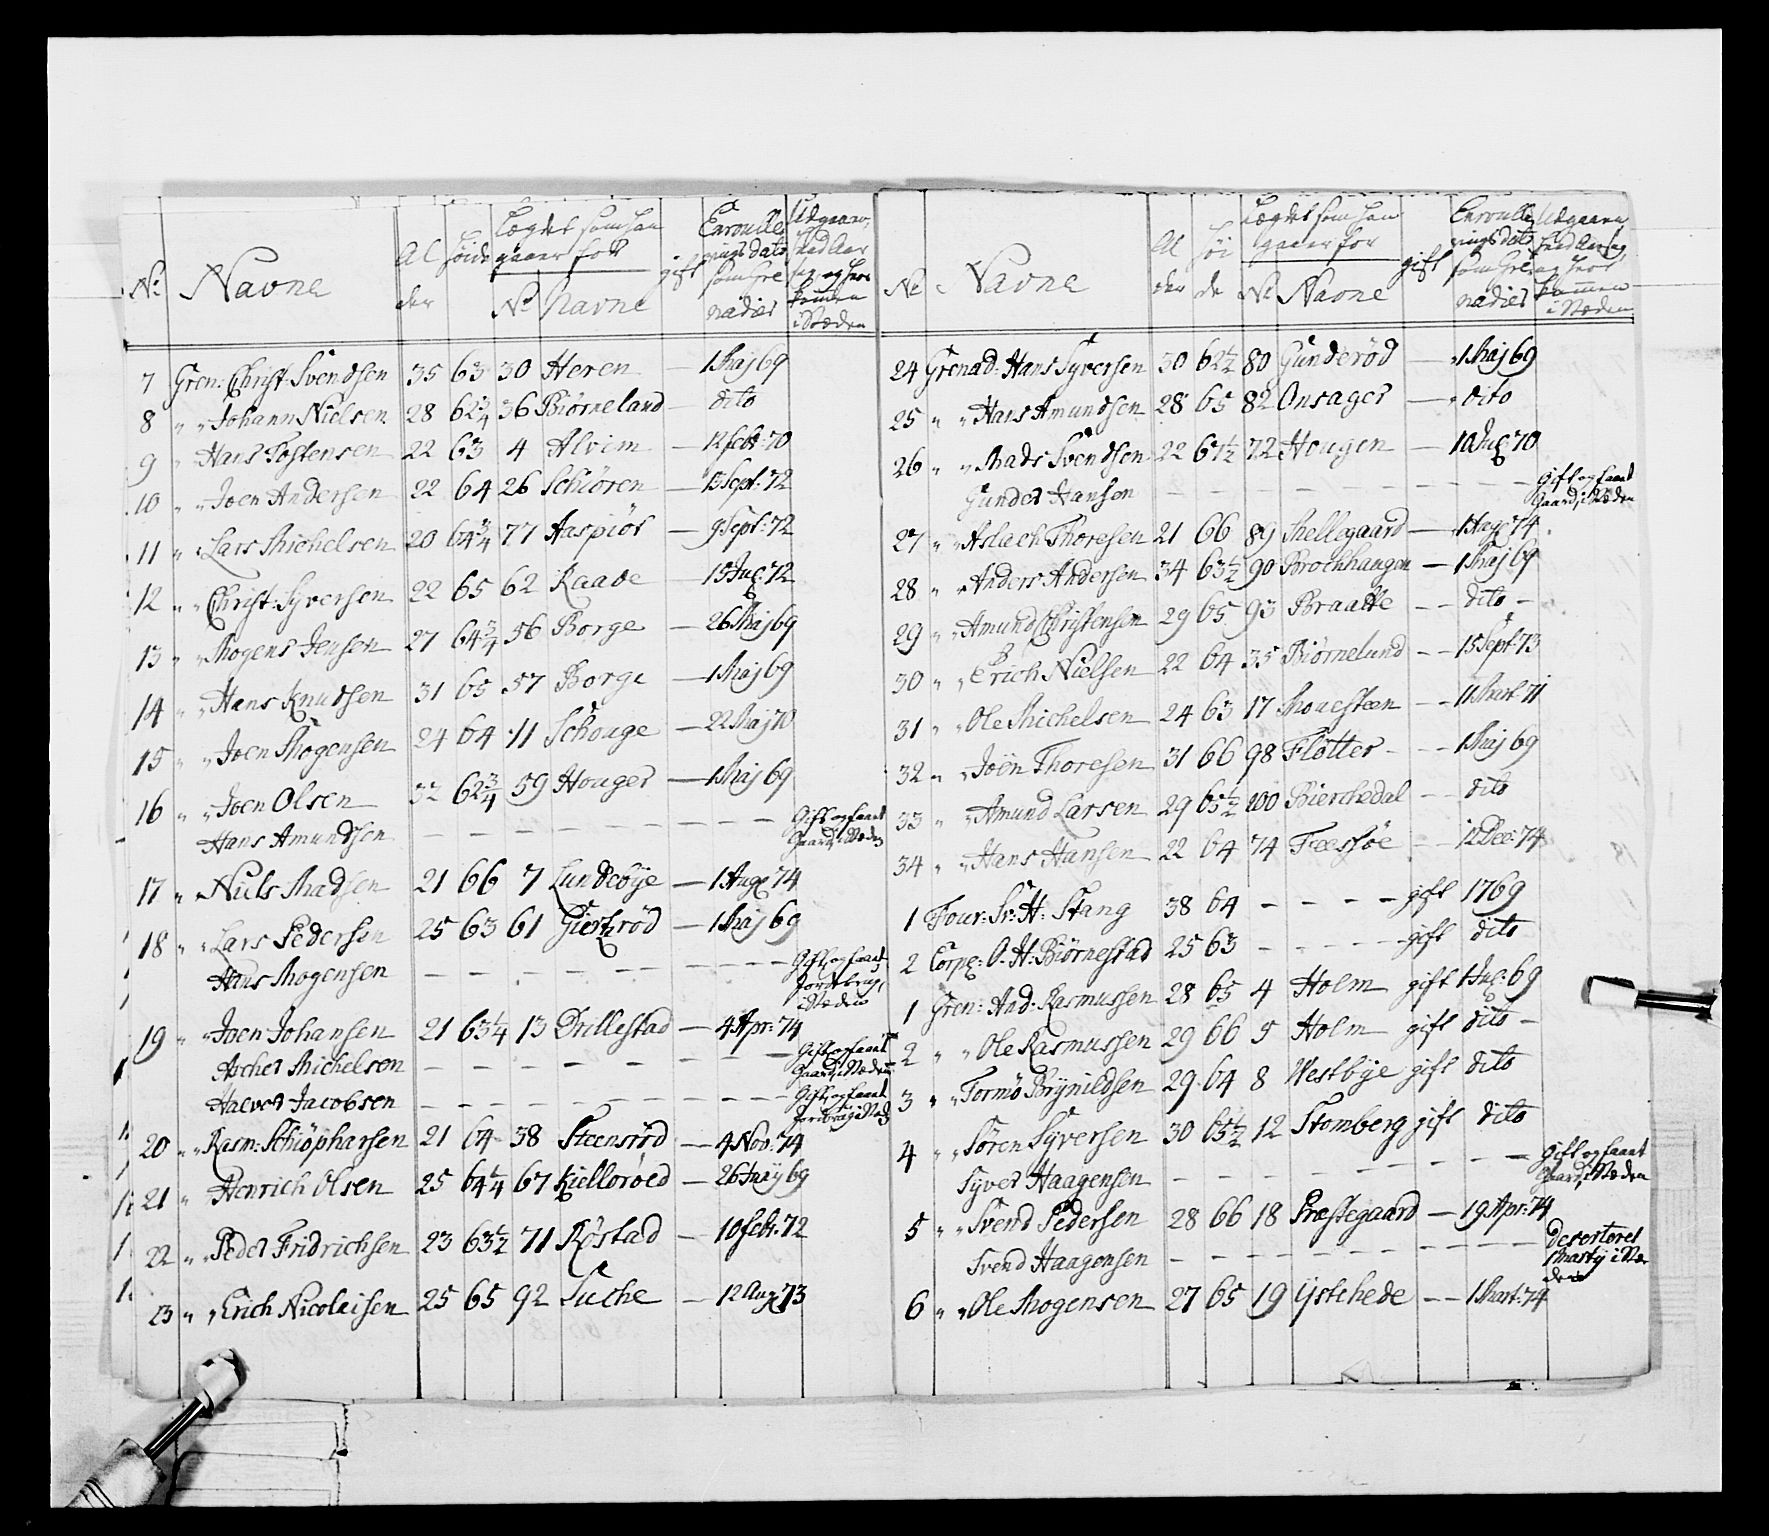 No Navne Alder Høide Lægdet som han gaaer for No Navne gift Enroullerings dato som Grenadier Udgaaer, ved Aarsag, og hvor kommen i Stæden
7 Gren: Christ: Svendsen 35 63 30 Heren — 1 Maj 69
8 " " Johann Nielsen 28 62 3/4 36 Biørneland — dito
9 " Hans Tostensen 22 63 4 Alvim — 12 febr: 70
10 " " Joen Andersen 22 64 26 Schiøren — 15 Sept: 72
11 " Lars Michelsen 20 64 3/4 77 Haspiør — 9 Sept: 72
12 " " Christ: Syversen 22 65 62 Raade — 15 Jul: 72
13 " " Mogens Jensen 27 64 3/4 56 Borge — 26 Maj 69
14 " " Hans Knudsen 31 65 57 Borge — 1 Maj 69
15 " " Joen Mogensen 24 64 11 Schouge — 22 Maj 70
16 " " Joen Olsen 32 62 3/4 59 Houger — 1 Maj 69
Hans Amundsen — — — — — — — — Gift og faaet Gaard, i Stæden
17 " Niels Madsen 21 66 7 Lundebye — 1 Aug: 74
18 " " Lars Pedersen 25 63 61 Giertzrød — 1 Maj 69
Hans Mogensen — — — — — — — — Gift, og faaet Jordbrug, i Stæden
19 " " Joen Johansen 21 63 1/4 13 Drillestad — 4 Apr: 74
Ascher Michelsen — — — — — — — Gift og faaet Gaard, i Stæden
Halvor Jacobsen — — — — — — — — Gift, og faaet Jordbrug i Stæd
20 " " Rasm: Schiøpharsen 21 64 38 Steensrød — 4 Nov: 74
21 " Henrich Olsen 25 64 1/4 67 Kiellerøed — 26 Maij 69
22 " " Peder Fridrichsen 23 63 1/2 71 Røstad — 10 febr: 72
23 " " Erich Nicolaisen 25 65 92 Suche — 12 Aug: 73
No Navne Alder Høide Lægdet som han gaaer for No Navne gift Enroullerings dato som Grenadier Udgaaer, ved Aarsag, og hvor kommen i Stæden
24 Grenad: Hans Syversen 30 62 1/2 80 Gunderød — 1 Maj 69
25 " " Hans Amundsen 28 65 82 Onsager — dito
26 " " Mads Svendsen 22 61 1/2 72 Hougen — 1 Aug: 70
Gunder Hansen — — — — — — — — Gift og faaet Gaard, i Stæden
27 " " Aslach Thoresen 21 66 89 Mellegaard — 1 Aug: 74
28 " " Anders Andersen 34 63 1/2 90 Brochhaugen — 1 Maj 69
29 " " Amund Christensen 29 65 93 Braatte — — dito —
30 " " Erich Nielsen 22 64 35 Biørnelund — — 15 Sept: 73
31 " " Ole Michelsen 24 63 17 Mouesteen — — 11 Mart: 71
32 " " Joen Thoresen 31 66 98 Fløtter — — 1 Maj 69
33 " " Amund Larsen 29 65 1/2 100 Bierchedal — — dito
34 " " Hans Hansen 22 64 74 Feesjøe — — 12 Dec: 74
1 Four: Sr: H: Stang 38 64 — — — — gift 1769
2 Corpe: O. H: Biørnestad 25 63 — — — — gift dito
1 Gren: And: Rasmussen 28 65 4 Holm gift 1 Jul: 69
2 " " Ole Rasmussen 29 66 5 Holm gift dito —
3 " " Tormo Brynildsen 29 64 8 Westbye gift dito
4 " " Søren Syversen 30 65 1/2 12 Stomberg gift dito
Syver Haagensen — — — — — — — — Gift og faaet Gaard, i Stæden
5 " " Svend Pedersen 28 66 18 Præstegaard — 19 Apr: 74
Svend Haagensen — — — — — — — — deserteret
6 " " Ole Mogensen 27 65 19 Ystehede — — 1 Mart: 74